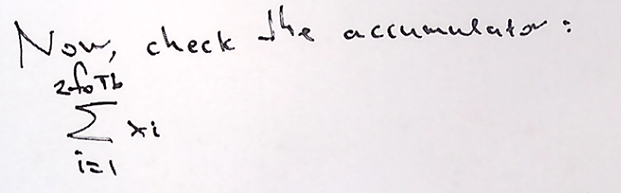 Now, check the accumulator:
2f₀Tb
∑ xi
i=1